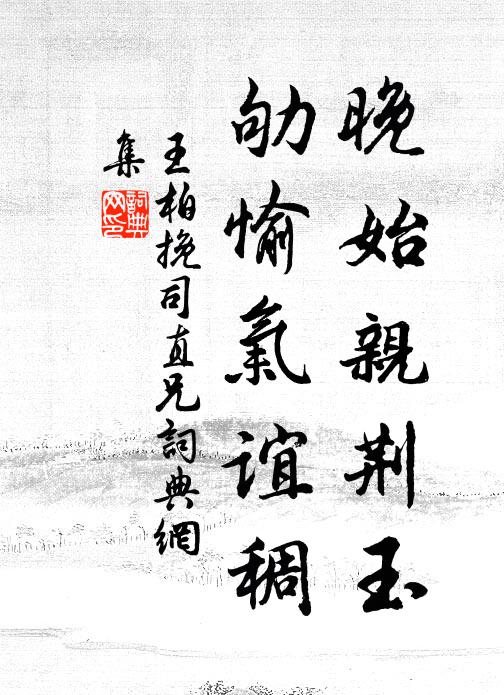 晚始親荆玉
劬愉氣誼稠
王柏挽司直兄詞典網
集
詞典
网印